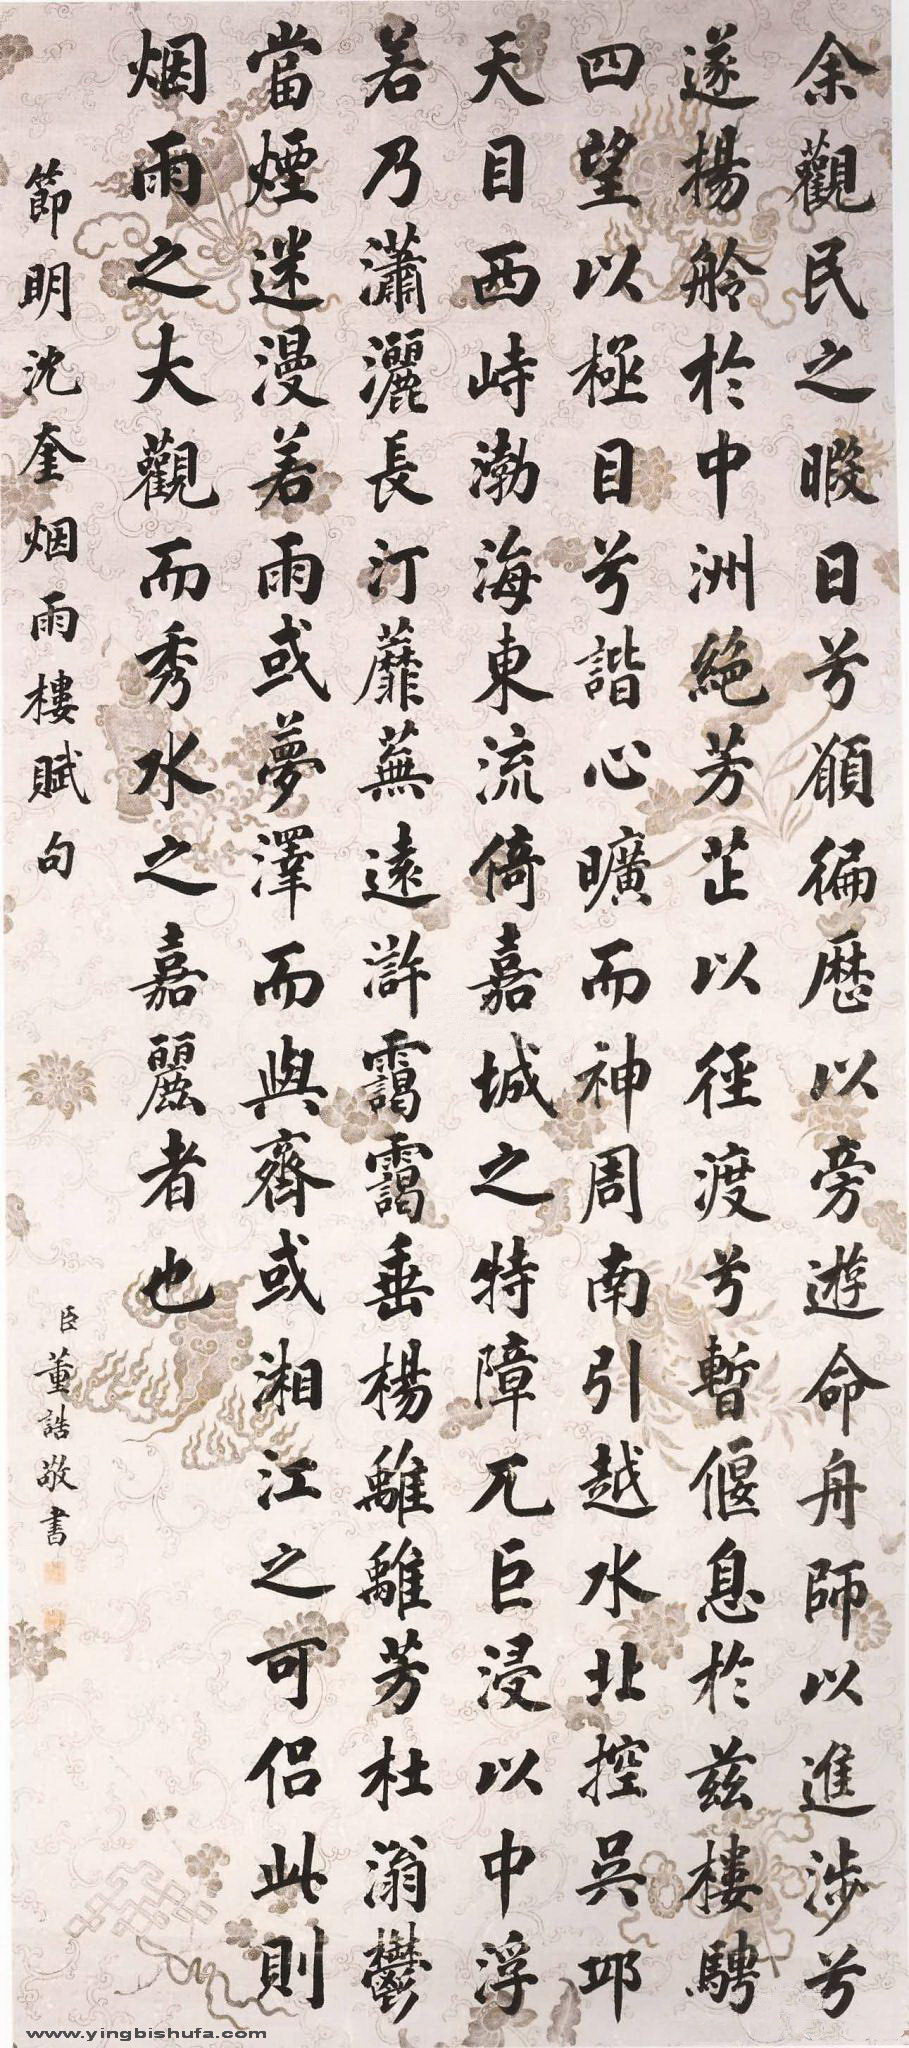 余觀民之暇日兮願徧歷以旁遊命舟師以進涉兮
遂揚舲於中洲絕芳芷以徑渡兮暫偃息於茲樓騁
四望以極目兮諧心曠而神周南引越水北控吳邛
天目西峙渤海東流倚嘉城之特障兀巨浸以中浮
若乃瀟灑長汀蘼蕪遠滸靄靄垂楊離離芳杜滃鬱
當煙迷漫若雨或夢澤而與齊或湘江之可侶此則
烟雨之大觀而秀水之嘉麗者也
節明沈奎烟雨樓賦句
臣董誥敬書
www.yingbishufa.com